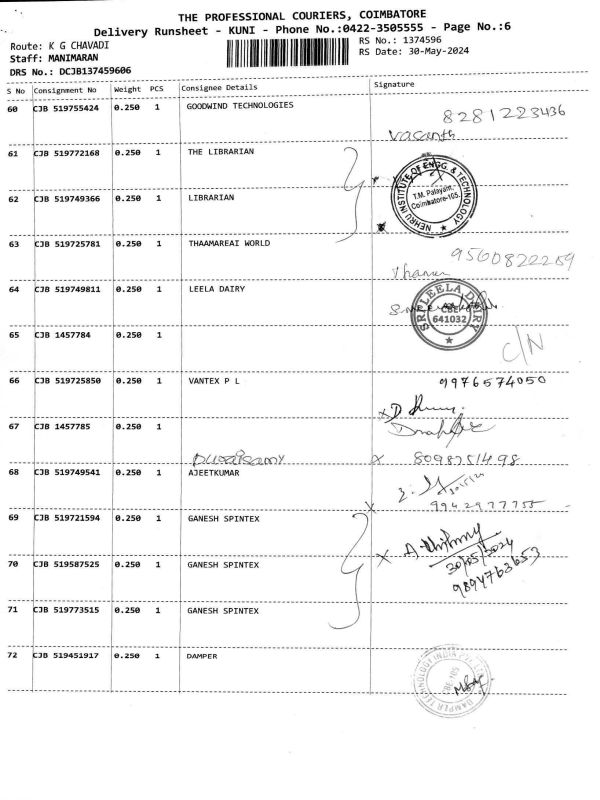 THE PROFESSIONAL COURIERS, COIMBATORE
Delivery Runsheet - KUNI - Phone No.:0422-3505555 - Page No.:6
Route: K G CHAVADI
RS No.: 1374596
Staff: MANIMARAN
RS Date: 30-May-2024
DRS No.: DCJB137459606
S No Consignment No Weight PCS Consignee Details Signature
60 CJB 519755424 0.250 1 GOODWIND TECHNOLOGIES
8281223436
Vasanth
61 CJB 519772168 0.250 1 THE LIBRARIAN
NEHRU INSTITUTE OF ENGG. & TECHNOLOGY
T.M. Palayam,
Coimbatore-105.
62 CJB 519749366 0.250 1 LIBRARIAN
63 CJB 519725781 0.250 1 THAAMAREAI WORLD
64 CJB 519749811 0.250 1 LEELA DAIRY
SRI LEELA DAIRY
641032
65 CJB 1457784 0.250 1
C/N
66 CJB 519725850 0.250 1 VANTEX P L
9976574050
67 CJB 1457785 0.250 1
Duraisamy
X 8098251498
68 CJB 519749541 0.250 1 AJEETKUMAR
X 9942977755
69 CJB 519721594 0.250 1 GANESH SPINTEX
30/05/2024
9894763653
70 CJB 519587525 0.250 1 GANESH SPINTEX
71 CJB 519773515 0.250 1 GANESH SPINTEX
72 CJB 519451917 0.250 1 DAMPER
DAMPER TECHNOLOGY INDIA PVT. LTD.
CBE-105